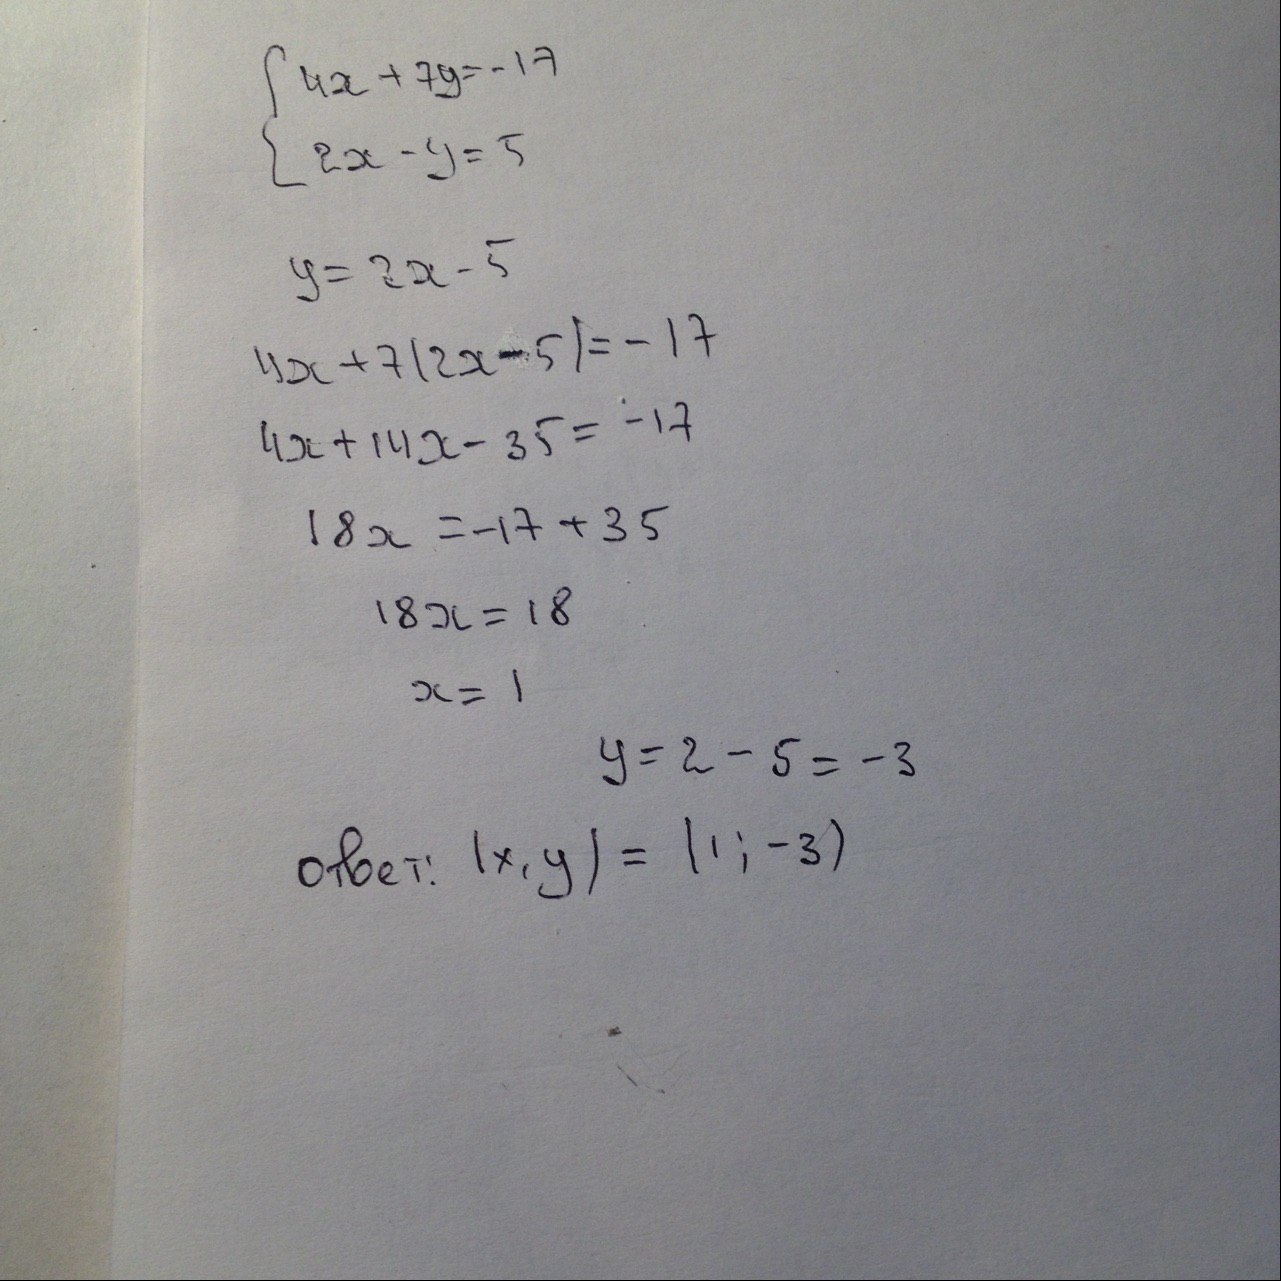 { 4x + 7y = -17
2x - y = 5
y = 2x - 5
4x + 7(2x - 5) = -17
4x + 14x - 35 = -17
18x = -17 + 35
18x = 18
x = 1
y = 2 - 5 = -3
Ответ: (x, y) = (1; -3)